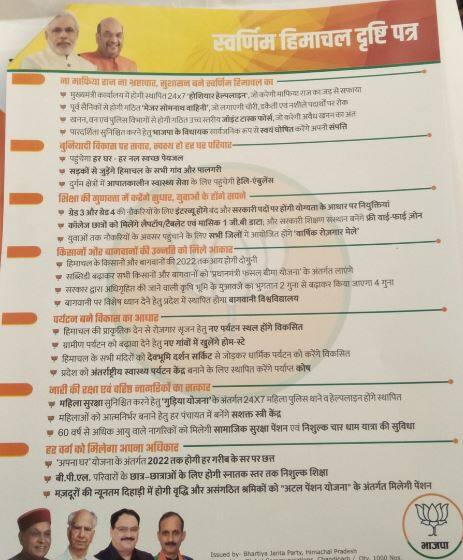 स्वर्णिम हिमाचल दृष्टि पत्र
ना माफिया राज ना भ्रष्टाचार, सुशासन बने स्वर्णिम हिमाचल का
मुख्यमंत्री कार्यालय में होगी स्थापित 24x7 'होशियार हेल्पलाइन', जो करेगी माफिया राज का जड़ से सफाया
पूर्व सैनिकों से होगी गठित 'मेजर सोमनाथ वाहिनी', जो लगाएगी चोरी, डकैती एवं नशीले पदार्थों पर रोक
खनन, वन एवं पुलिस विभागों से होगी गठित उच्च स्तरीय जॉइंट टास्क फोर्स, जो करेगी अवैध खनन का अंत
पारदर्शिता सुनिश्चित करने हेतु भाजपा के विधायक सार्वजनिक रूप से स्वयं घोषित करेंगे अपनी संपत्ति
बुनियादी विकास पर सवार, स्वस्थ हो हर घर परिवार
पहुंचेगा हर घर - हर नल स्वच्छ पेयजल
सड़कों से जुड़ेंगे हिमाचल के सभी गांव और पालगरी
दुर्गम क्षेत्रों में आपातकालीन स्वास्थ्य सेवा के लिए पहुंचेगी हेलि-एंबुलेंस
शिक्षा की गुणवत्ता में करेंगे सुधार, युवाओं के होंगे सपने
ग्रेड 3 और ग्रेड 4 की नौकरियों के लिए इंटरव्यू होंगे बंद और सरकारी पदों पर होंगी योग्यता के आधार पर नियुक्तियां
कॉलेज छात्रों को मिलेंगे लैपटॉप/टैबलेट एवं मासिक 1 जी.बी डाटा; और सरकारी शिक्षण संस्थान बनेंगे फ्री वाई-फाई ज़ोन
युवाओं तक नौकरियों के अवसर पहुंचाने के लिए सभी जिलों में आयोजित होंगे 'वार्षिक रोज़गार मेले'
किसानों और बागवानों की उन्नति को मिले आकार
हिमाचल के किसानों और बागवानों की 2022 तक आय होगी दोगुनी
सब्सिडी बढ़ाकर सभी किसानों और बागवानों को 'प्रधानमंत्री फसल बीमा योजना' के अंतर्गत लाएंगे
सरकार द्वारा अधिगृहित की जाने वाली कृषि भूमि के मुआवजे का भुगतान 2 गुना से बढ़ाकर किया जाएगा 4 गुना
बागवानी पर विशेष ध्यान देने हेतु प्रदेश में स्थापित होगा बागवानी विश्वविद्यालय
पर्यटन बने विकास का आधार
हिमाचल की प्राकृतिक देन से रोजगार सृजन हेतु नए पर्यटन स्थल होंगे विकसित
ग्रामीण पर्यटन को बढ़ावा देने हेतु नए गांवों में खुलेंगे होम-स्टे
हिमाचल के सभी मंदिरों को देवभूमि दर्शन सर्किट से जोड़कर धार्मिक पर्यटन को करेंगे विकसित
प्रदेश को अंतर्राष्ट्रीय स्वास्थ्य पर्यटन केंद्र बनाने के लिए स्थापित करेंगे पर्याप्त कोष
नारी की रक्षा एवं वरिष्ठ नागरिकों का सत्कार
महिला सुरक्षा सुनिश्चित करने हेतु 'गुड़िया योजना' के अंतर्गत 24X7 महिला पुलिस थाने व हेल्पलाइन होंगे स्थापित
महिलाओं को आत्मनिर्भर बनाने हेतु हर पंचायत में बनेंगे सशक्त स्त्री केंद्र
60 वर्ष से अधिक आयु वाले नागरिकों को मिलेगी सामाजिक सुरक्षा पेंशन एवं निशुल्क चार धाम यात्रा की सुविधा
हर वर्ग को मिलेगा अपना अधिकार
'अपना घर' योजना के अंतर्गत 2022 तक होगी हर गरीब के सर पर छत
बी.पी.एल. परिवारों के छात्र-छात्राओं के लिए होगी स्नातक स्तर तक निशुल्क शिक्षा
मज़दूरों की न्यूनतम दिहाड़ी में होगी वृद्धि और असंगठित श्रमिकों को "अटल पेंशन योजना" के अंतर्गत मिलेगी पेंशन
भाजपा
Issued by- Bhartiya Janta Party, Himachal Pradesh
Chandigarh / Qty. 1000 Nos.